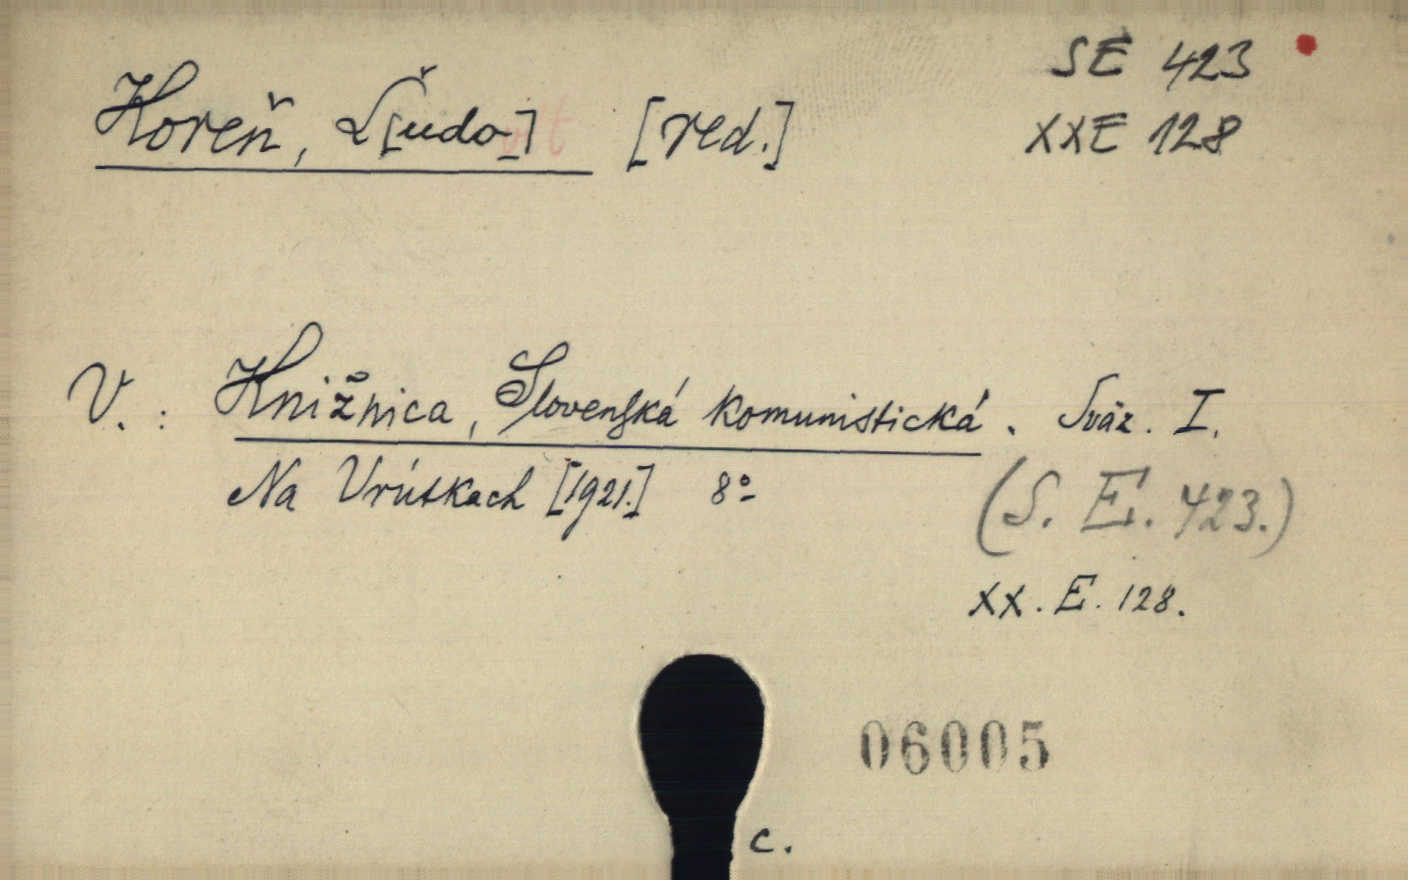 SE 423
Koreň, Ľ[udo] [red.]
XXE 128
V. : Knižnica, Slovenská komunistická. Sväz. I.
Na Vrútkach [1921.] 8°
(S. E. 423.)
XX. E. 128.
06005
c.